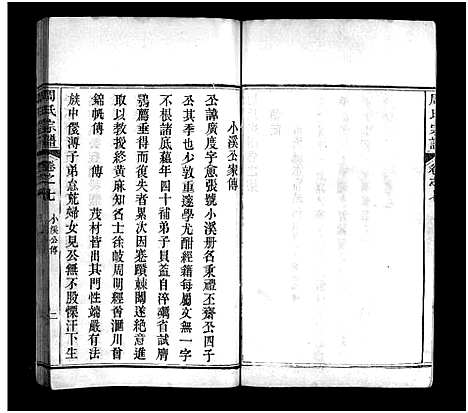 小溪公家傳
公諱廣度字愈張號小溪册名重禮丕齋公四子
公其季也少敦重邃學尤酣經籍每屬文無一字
不根諸底蘊年四十補弟子員自淬礪省試膺
鶚薦而復失者累次因蹇躓棘闈遂絶意進
取以教授終黃麻知名士徐岐周明經晉滙川首
錦帆傳 傳 茂材皆出其門性端嚴有法
族中儇薄子弟怠荒婦女見公無不股慄汗下生
周氏宗譜 卷之七 小溪公傳 二
周氏宗譜